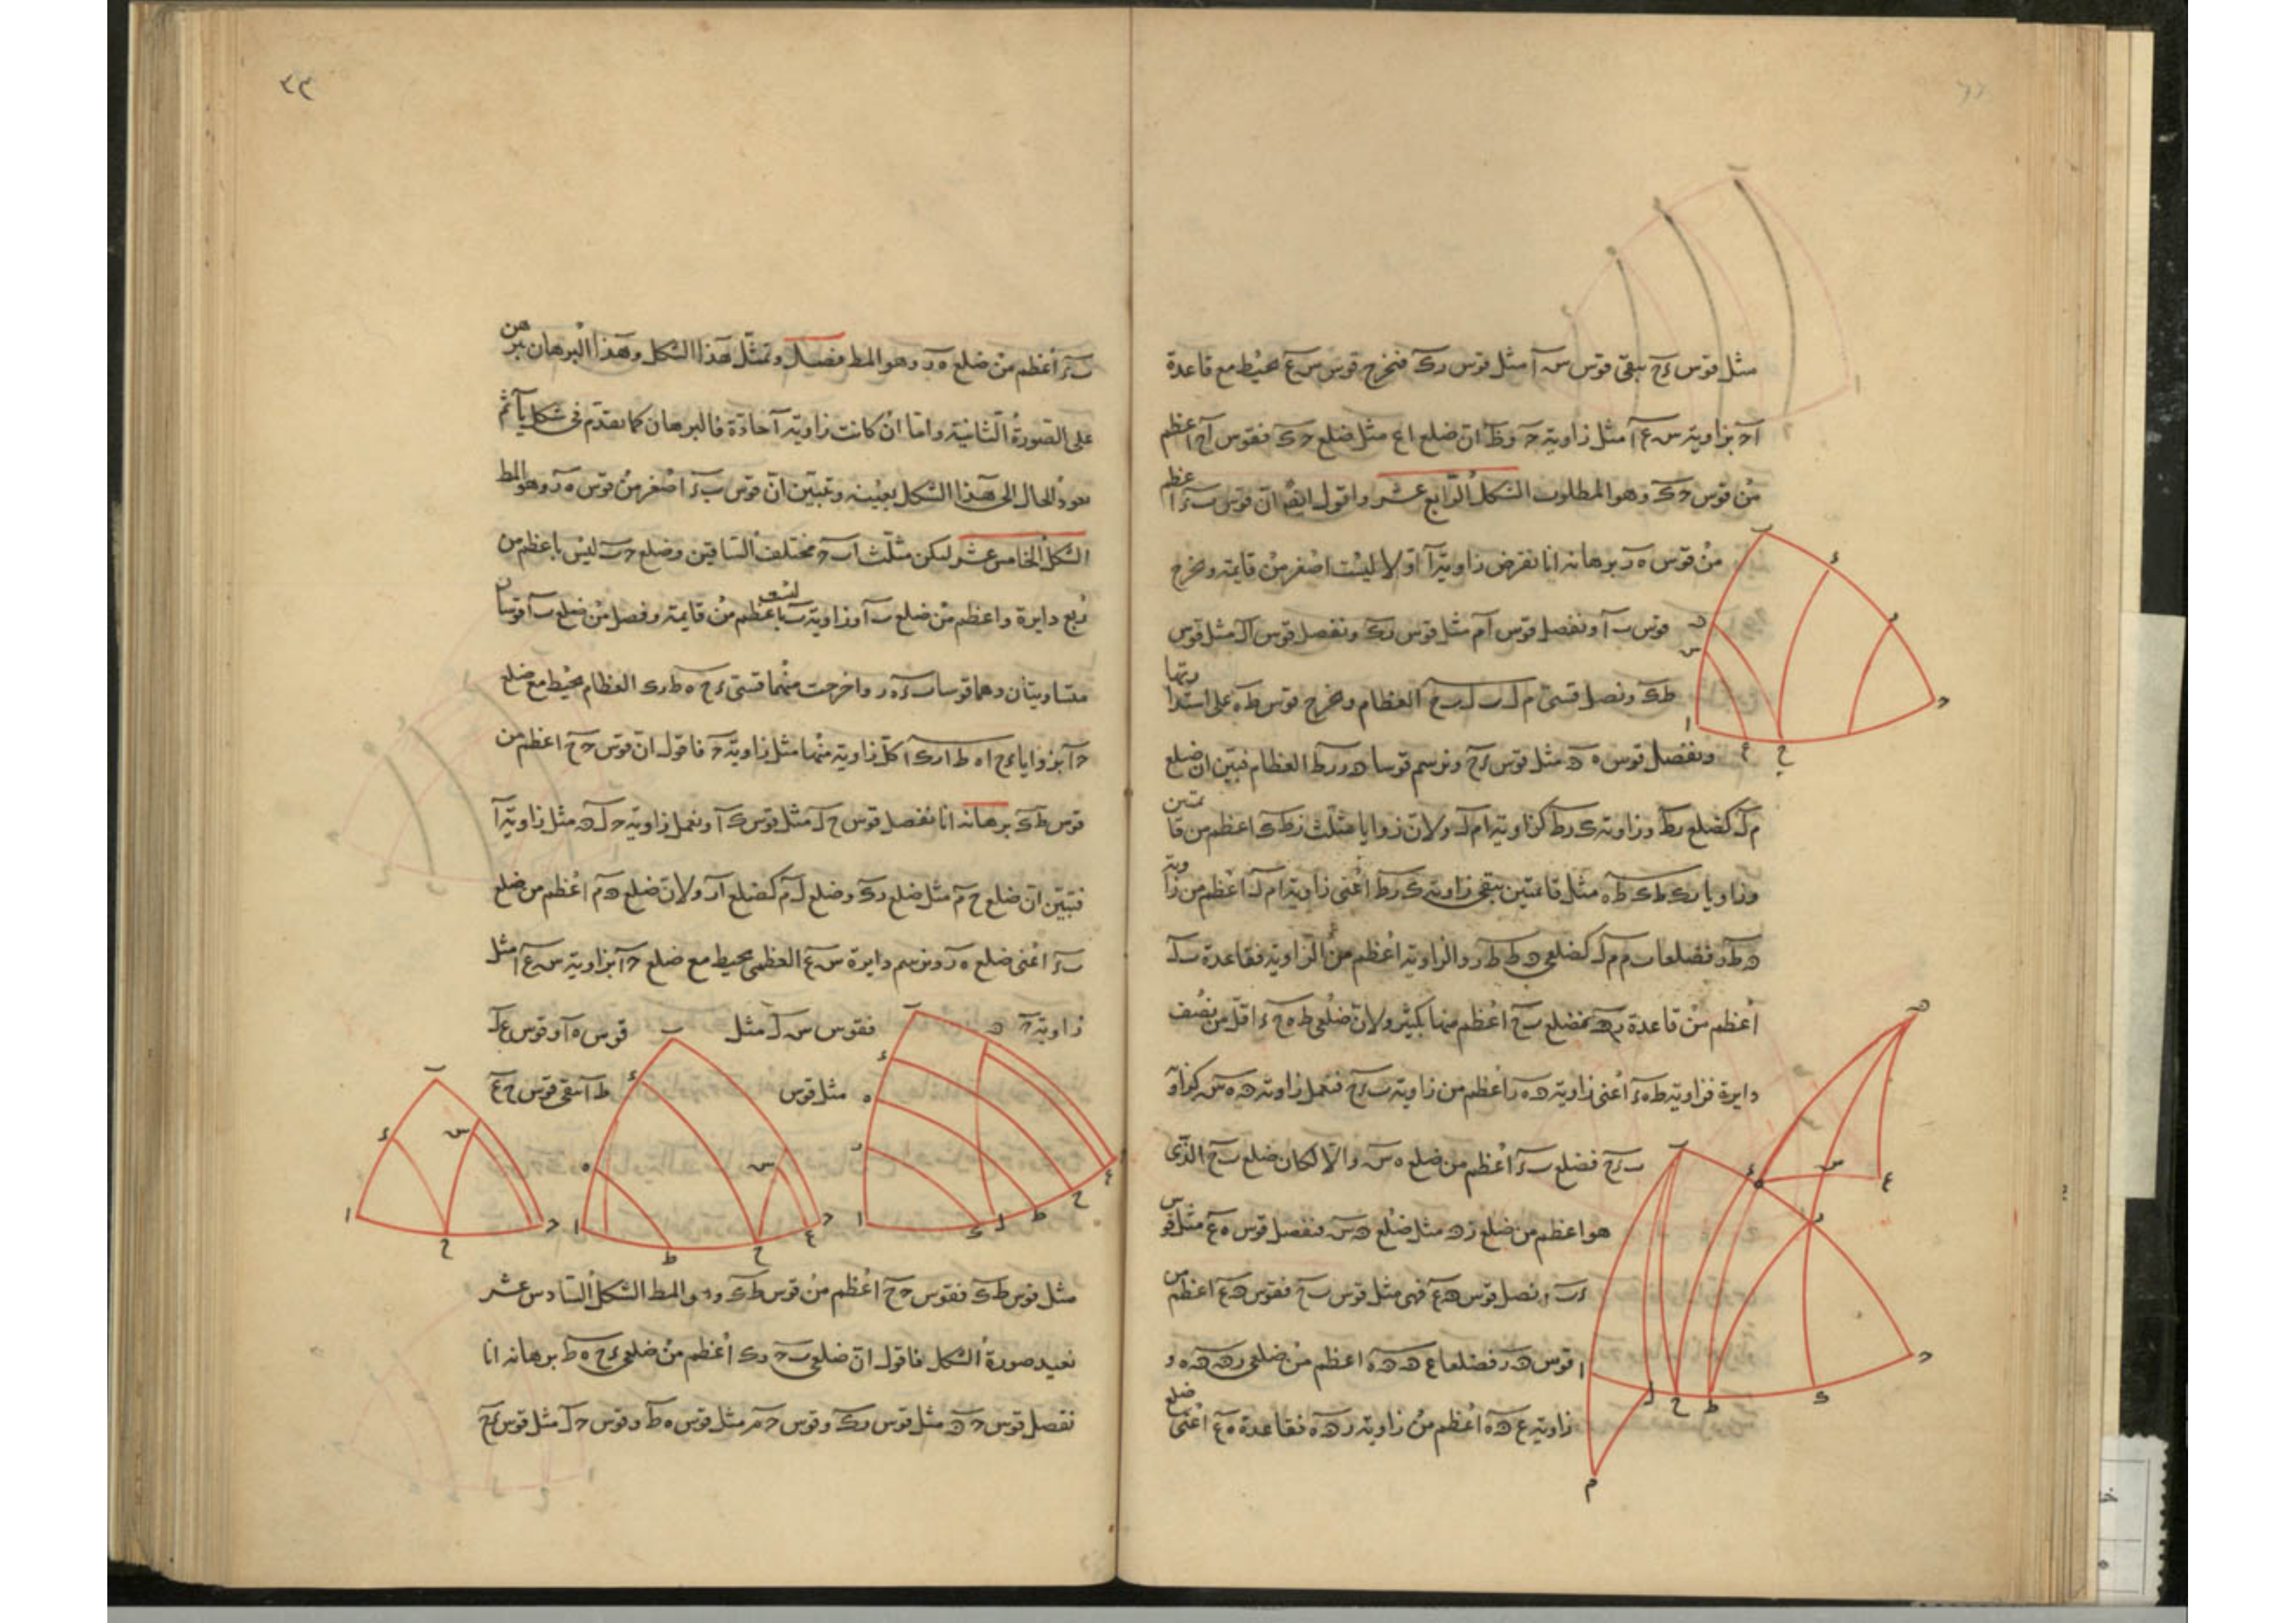 مثل قوس ءح يبقى قوس س آ مثل قوس رك فنخرج قوس س ع يحيط مع قاعدة
ا ح بزاوية س ع ا مثل زاوية ح وظ ان ضلع اع مثل ضلع ح ك فقوس اح اعظم
من قوس ح ك وهو المطلوب الشكل الرابع عشر واقول ايضا ان قوس ب ء اعظم
من قوس ه ر برهانه انا نفرض زاوية آ اولا ليست اصغر من قايمة ونخرج
قوس ب آ ونفصل قوس آم مثل قوس رك ونفصل قوس ال مثل قوس
ط ك ونصل قسي م ل ب ل ب ح العظام ونخرج قوس ط ه على استدارتها
ونفصل قوس ه ة مثل قوس ءح ونرسم قوسا ة ر ر ط العظام فتبين ان ضلع
م ل كضلع ر ط وزاوية ك ر ط كزاوية ا م ل ولان زوايا مثلث ر ط ك اعظم من قايمتين
وزاويا ر ط ك ر ط ه مثل قايمتين يبقى زاوية ك ر ط اعني زاوية ا م ل اعظم من زاوية
ة ط ر فضلعا ب م م ل كضلعي ة ط ط ر والزاوية اعظم من الزاوية فقاعدة ب ل
اعظم من قاعدة ر ة فضلع ب ح اعظم منها بكثير ولان ضلعي ط ه ح ء اقل من نصف
دايرة فزاوية ط ه ء اعني زاوية ة ه ر اعظم من زاوية ب ء ح فنعمل زاوية ة ه س كزاوية
ب ء ح فضلع ب ء اعظم من ضلع ه س والا لكان ضلع ب ح الذي
هو اعظم من ضلع ر ة مثل ضلع ة س فنفصل قوس ه ع مثل قوس
ء ب ونصل قوس ة ع فهي مثل قوس ب ح فقوس ة ع اعظم من
قوس ة ر فضلعا ع ة ة ه اعظم من ضلعي ر ة ة ه و
زاوية ع ة ه اعظم من زاوية ر ة ه فقاعدة ه ع اعني ضلع
٤٣
ب ء اعظم من ضلع ه ر وهو المط فصل وتمثل هذا الشكل وهذا البرهان نبرهن
على الصورة الثانية واما ان كانت زاوية آ حادة فالبرهان كما تقدم في شكل يآ ثم
نعود الحال الى هذا الشكل بعينه وتبين ان قوس ب ء اصغر من قوس ه ر وهو المط
الشكل الخامس عشر ليكن مثلث ا ب ح مختلف الساقين وضلع ح ب ليس باعظم من
ربع دايرة واعظم من ضلع ب آ وزاوية ب ليست باعظم من قايمة وفصل من ضلع ب آ قوسان
متساويتان وهما قوسا ب ء ه ر واخرجت منهما قسي ء ح ه ط ر ك العظام يحيط مع ضلع
ح آ بزوايا ء ح ا ه ط ا ر ك ا كل زاوية منها مثل زاوية ح فاقول ان قوس ح ح اعظم من
قوس ط ك برهانه انا نفصل قوس ح ل مثل قوس ك آ ونعمل زاوية ح ل ة مثل زاوية آ
فتبين ان ضلع ح م مثل ضلع ر ك وضلع ل م كضلع ا ر ولان ضلع ة م اعظم من ضلع
ب ء اعني ضلع ه ر ونرسم دايرة س ع العظمى يحيط مع ضلع ح آ بزاوية س ع ا مثل
زاوية ح فقوس س ل مثل قوس ه آ وقوس ع ل
مثل قوس ط آ تبقى قوس ح ع
مثل قوس ط ك فقوس ح ح اعظم من قوس ط ك وهو المط الشكل السادس عشر
نعيد صورة الشكل فاقول ان ضلعي ب ح ر ك اعظم من ضلعي ء ح ه ط برهانه انا
نفصل قوس ح ة مثل قوس ر ك وقوس ح م مثل قوس ه ط وقوس ح ل مثل قوس ء ح